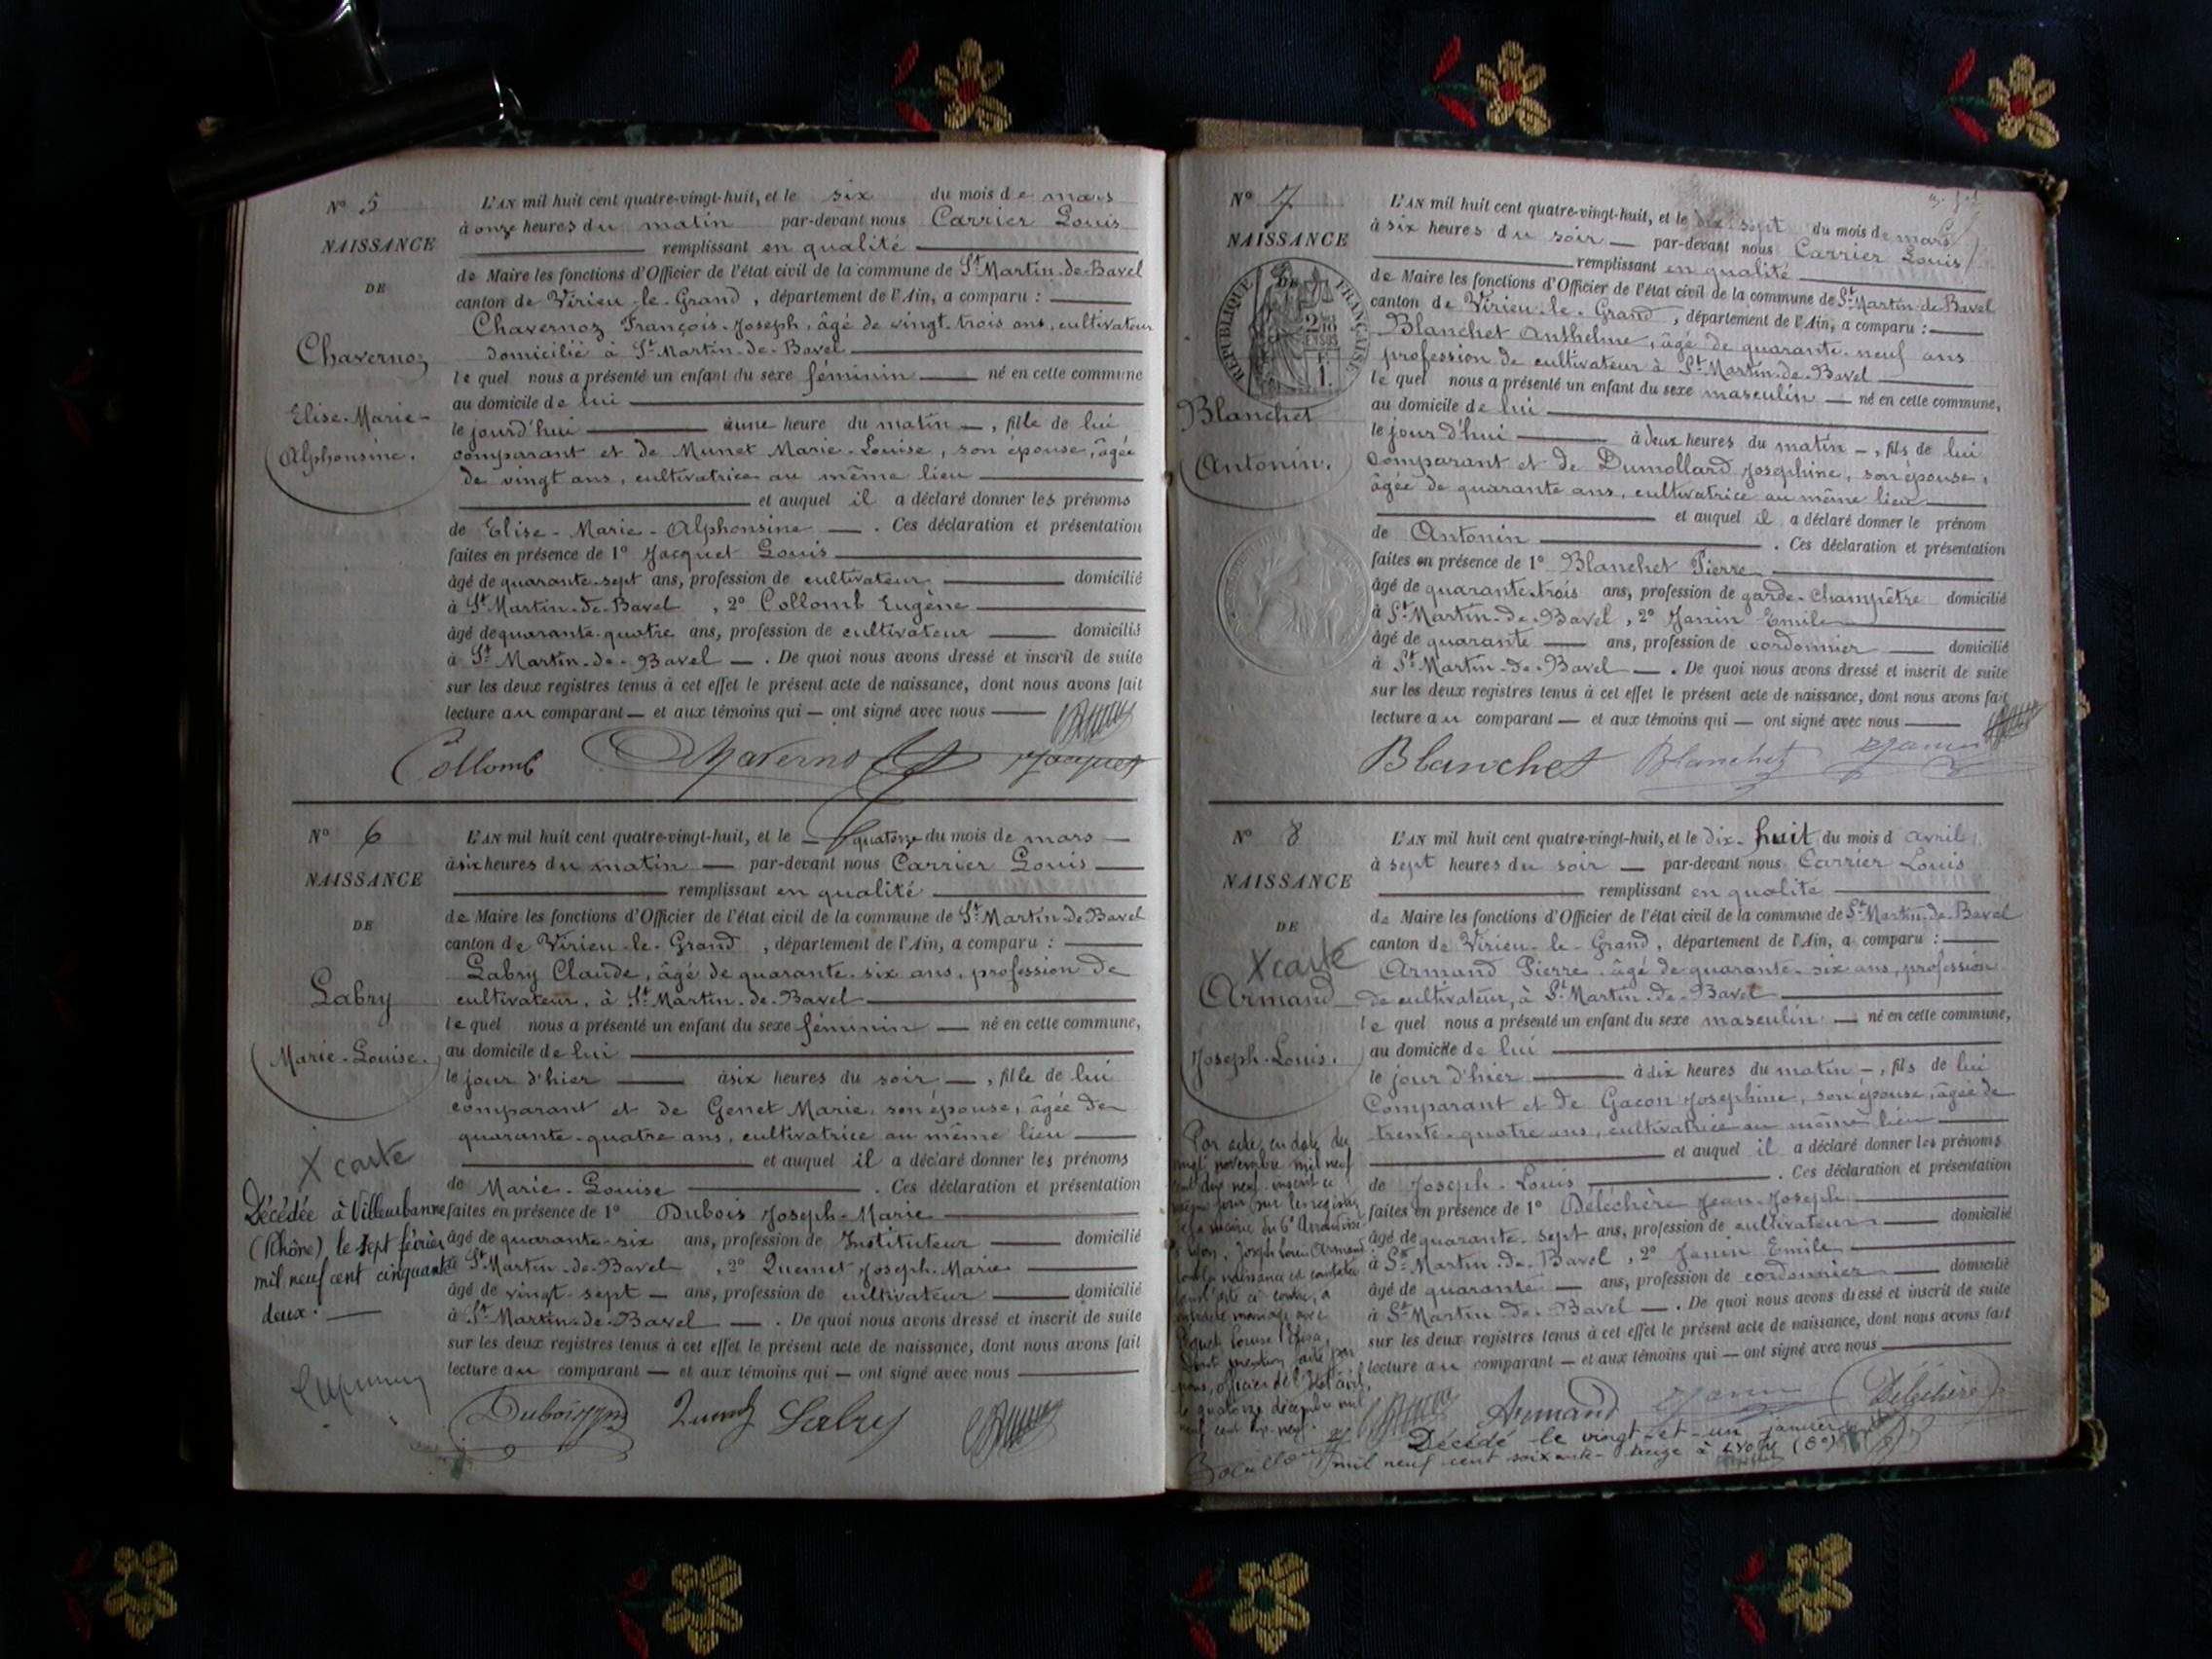 N° 5
NAISSANCE
DE
Chavernoz
Elise-Marie-
Alphonsine.
L'AN mil huit cent quatre-vingt-huit, et le six du mois de mars
à onze heures du matin par-devant nous Carrier Louis
remplissant en qualité
de Maire les fonctions d'Officier de l'état civil de la commune de St Martin-de-Bavel
canton de Virieu-le-Grand, département de l'Ain, a comparu :
Chavernoz François-Joseph, âgé de vingt-trois ans, cultivateur
domicilié à St Martin-de-Bavel
lequel nous a présenté un enfant du sexe féminin né en cette commune
au domicile de lui
le jourd'hui à une heure du matin, fille de lui
comparant et de Munet Marie-Louise, son épouse, âgée
de vingt ans, cultivatrice au même lieu
et auquel il a déclaré donner les prénoms
de Elise-Marie-Alphonsine. Ces déclaration et présentation
faites en présence de 1° Jacquet Louis
âgé de quarante-sept ans, profession de cultivateur domicilié
à St Martin-de-Bavel, 2° Collomb Eugène
âgé de quarante-quatre ans, profession de cultivateur domicilié
à St Martin-de-Bavel. De quoi nous avons dressé et inscrit de suite
sur les deux registres tenus à cet effet le présent acte de naissance, dont nous avons fait
lecture au comparant et aux témoins qui ont signé avec nous
Collomb Chavernoz Jacquet
N° 6
NAISSANCE
DE
Labry
Marie-Louise.
X carte
Décédée à Villeurbanne
(Rhône) le sept février
mil neuf cent cinquante
deux.
L'AN mil huit cent quatre-vingt-huit, et le quatorze du mois de mars
à six heures du matin par-devant nous Carrier Louis
remplissant en qualité
de Maire les fonctions d'Officier de l'état civil de la commune de St Martin-de-Bavel
canton de Virieu-le-Grand, département de l'Ain, a comparu :
Labry Claude, âgé de quarante-six ans, profession de
cultivateur, à St Martin-de-Bavel
lequel nous a présenté un enfant du sexe féminin né en cette commune,
au domicile de lui
le jour d'hier à six heures du soir, fille de lui
comparant et de Genet Marie, son épouse, âgée de
quarante-quatre ans, cultivatrice au même lieu
et auquel il a déclaré donner les prénoms
de Marie-Louise. Ces déclaration et présentation
faites en présence de 1° Dubois Joseph-Marie
âgé de quarante-six ans, profession de Instituteur domicilié
à St Martin-de-Bavel, 2° Quemet Joseph-Marie
âgé de vingt-sept ans, profession de cultivateur domicilié
à St Martin-de-Bavel. De quoi nous avons dressé et inscrit de suite
sur les deux registres tenus à cet effet le présent acte de naissance, dont nous avons fait
lecture au comparant et aux témoins qui ont signé avec nous
Dubois Labry
N° 7
NAISSANCE
DE
RÉPUBLIQUE FRANÇAISE
Blanchet
Antonin.
L'AN mil huit cent quatre-vingt-huit, et le dix-sept du mois de mars
à six heures du soir par-devant nous Carrier Louis
remplissant en qualité
de Maire les fonctions d'Officier de l'état civil de la commune de St Martin-de-Bavel
canton de Virieu-le-Grand, département de l'Ain, a comparu :
Blanchet Anthelme, âgé de quarante-neuf ans
profession de cultivateur à St Martin-de-Bavel
lequel nous a présenté un enfant du sexe masculin né en cette commune,
au domicile de lui
le jour d'hui à deux heures du matin, fils de lui
comparant et de Dumollard Josephine, son épouse,
âgée de quarante ans, cultivatrice au même lieu
et auquel il a déclaré donner le prénom
de Antonin. Ces déclaration et présentation
faites en présence de 1° Blanchet Pierre
âgé de quarante-trois ans, profession de garde-champêtre domicilié
à St Martin-de-Bavel, 2° Janin Emile
âgé de quarante ans, profession de cordonnier domicilié
à St Martin-de-Bavel. De quoi nous avons dressé et inscrit de suite
sur les deux registres tenus à cet effet le présent acte de naissance, dont nous avons fait
lecture au comparant et aux témoins qui ont signé avec nous
Blanchet Blanchet Janin
N° 8
NAISSANCE
DE
X carte
Armand
Joseph-Louis.
Par acte en date du
vingt novembre mil neuf
cent dix neuf inscrit ce
même jour sur les registres
de la mairie du 6e Arrondisst
Lyon, Joseph Louis Armand
dont la naissance est constatée
par l'acte ci contre, a
contracté mariage avec
Louise Elisa,
dont mention faite par
nous, officier de l'Etat civil,
le quatorze décembre mil
neuf cent dix-neuf.
L'AN mil huit cent quatre-vingt-huit, et le dix-huit du mois d avril
à sept heures du soir par-devant nous Carrier Louis
remplissant en qualité
de Maire les fonctions d'Officier de l'état civil de la commune de St Martin-de-Bavel
canton de Virieu-le-Grand, département de l'Ain, a comparu :
Armand Pierre, âgé de quarante-six ans, profession
de cultivateur, à St Martin-de-Bavel
lequel nous a présenté un enfant du sexe masculin né en cette commune,
au domicile de lui
le jour d'hier à dix heures du matin, fils de lui
Comparant et de Gacon Josephine, son épouse, âgée de
trente-quatre ans, cultivatrice au même lieu
et auquel il a déclaré donner les prénoms
de Joseph-Louis. Ces déclaration et présentation
faites en présence de 1° Déléchère Jean-Joseph
âgé de quarante-sept ans, profession de cultivateur domicilié
à St Martin-de-Bavel, 2° Janin Emile
âgé de quarante ans, profession de cordonnier domicilié
à St Martin-de-Bavel. De quoi nous avons dressé et inscrit de suite
sur les deux registres tenus à cet effet le présent acte de naissance, dont nous avons fait
lecture au comparant et aux témoins qui ont signé avec nous
Armand Janin Déléchère
Décédé le vingt-et-un janvier
mil neuf cent soixante-treize à Lyon (8e)